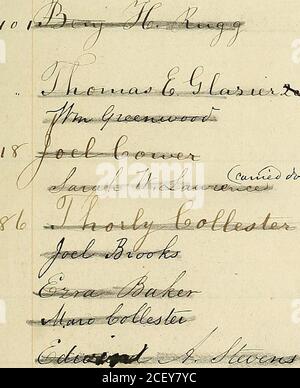 101 Benj. H. Rugg
" Thomas E. Glasier
Wm Greenwood
18 Joel Cower
(carried do
Sarah W. Lawrence
86 Thorly Collester
Joel Brooks
Ezra Baker
Marv Collester
Edwind A. Stevens
a
alamy
2CEY7YC